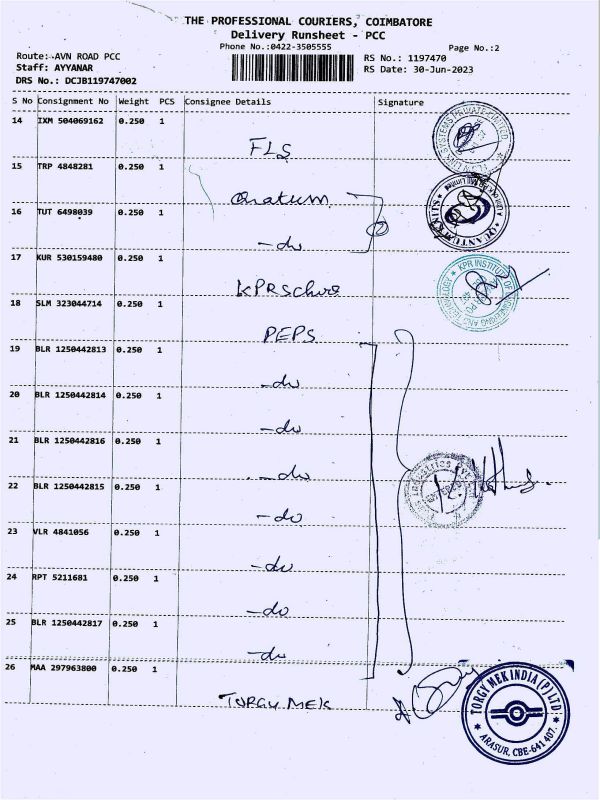 THE PROFESSIONAL COURIERS, COIMBATORE
Delivery Runsheet - PCC
Phone No.:0422-3505555
Page No.:2
Route: AVN ROAD PCC
Staff: AYYANAR
DRS No.: DCJB119747002
RS No.: 1197470
RS Date: 30-Jun-2023
S No Consignment No Weight PCS Consignee Details Signature
14 IXM 504069162 0.250 1
FLS
15 TRP 4848281 0.250 1
16 TUT 6498039 0.250 1
-do
17 KUR 530159480 0.250 1
KPR
18 SLM 323044714 0.250 1
PEPS
19 BLR 1250442813 0.250 1
-do
20 BLR 1250442814 0.250 1
-do
21 BLR 1250442816 0.250 1
-do
22 BLR 1250442815 0.250 1
-do
23 VLR 4841056 0.250 1
-do
24 RPT 5211681 0.250 1
-do
25 BLR 1250442817 0.250 1
-do
26 MAA 297963800 0.250 1
TORGY MEK
SYSTEMS PRIVATE LIMITED
QUANTUM KNITS
KPR INSTITUTE OF ENGINEERING AND TECHNOLOGY
TORGY MEK INDIA (P) LTD
ARASUR, CBE-641 407.